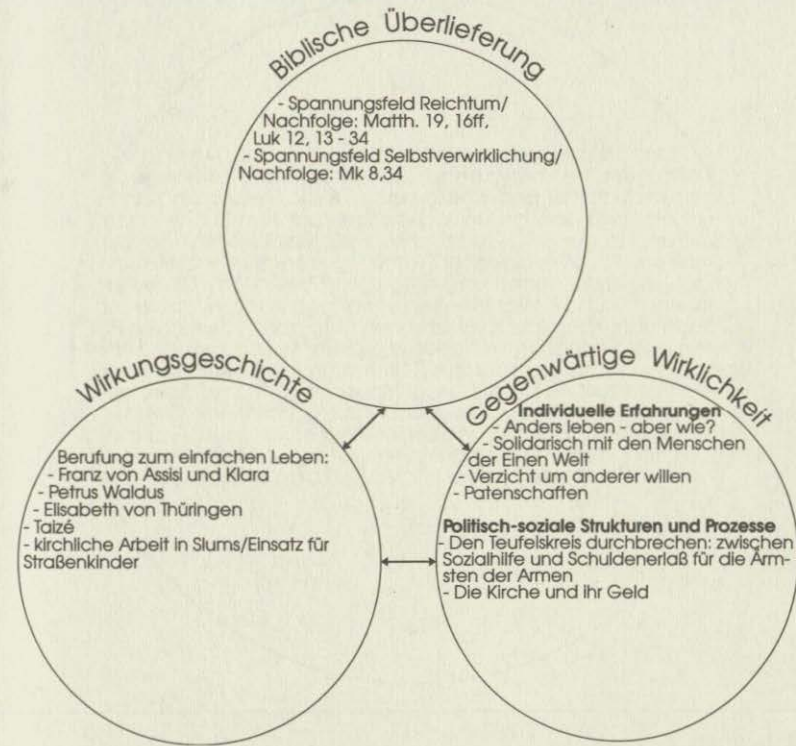 Biblische Überlieferung
- Spannungsfeld Reichtum/
Nachfolge: Matth. 19, 16ff,
Luk 12, 13 - 34
- Spannungsfeld Selbstverwirklichung/
Nachfolge: Mk 8,34
Wirkungsgeschichte
Berufung zum einfachen Leben:
- Franz von Assisi und Klara
- Petrus Waldus
- Elisabeth von Thüringen
- Taizé
- kirchliche Arbeit in Slums/Einsatz für
Straßenkinder
Gegenwärtige Wirklichkeit
Individuelle Erfahrungen
- Anders leben - aber wie?
- Solidarisch mit den Menschen
der Einen Welt
- Verzicht um anderer willen
- Patenschaften
Politisch-soziale Strukturen und Prozesse
- Den Teufelskreis durchbrechen: zwischen
Sozialhilfe und Schuldenerlaß für die Ärm-
sten der Armen
- Die Kirche und ihr Geld